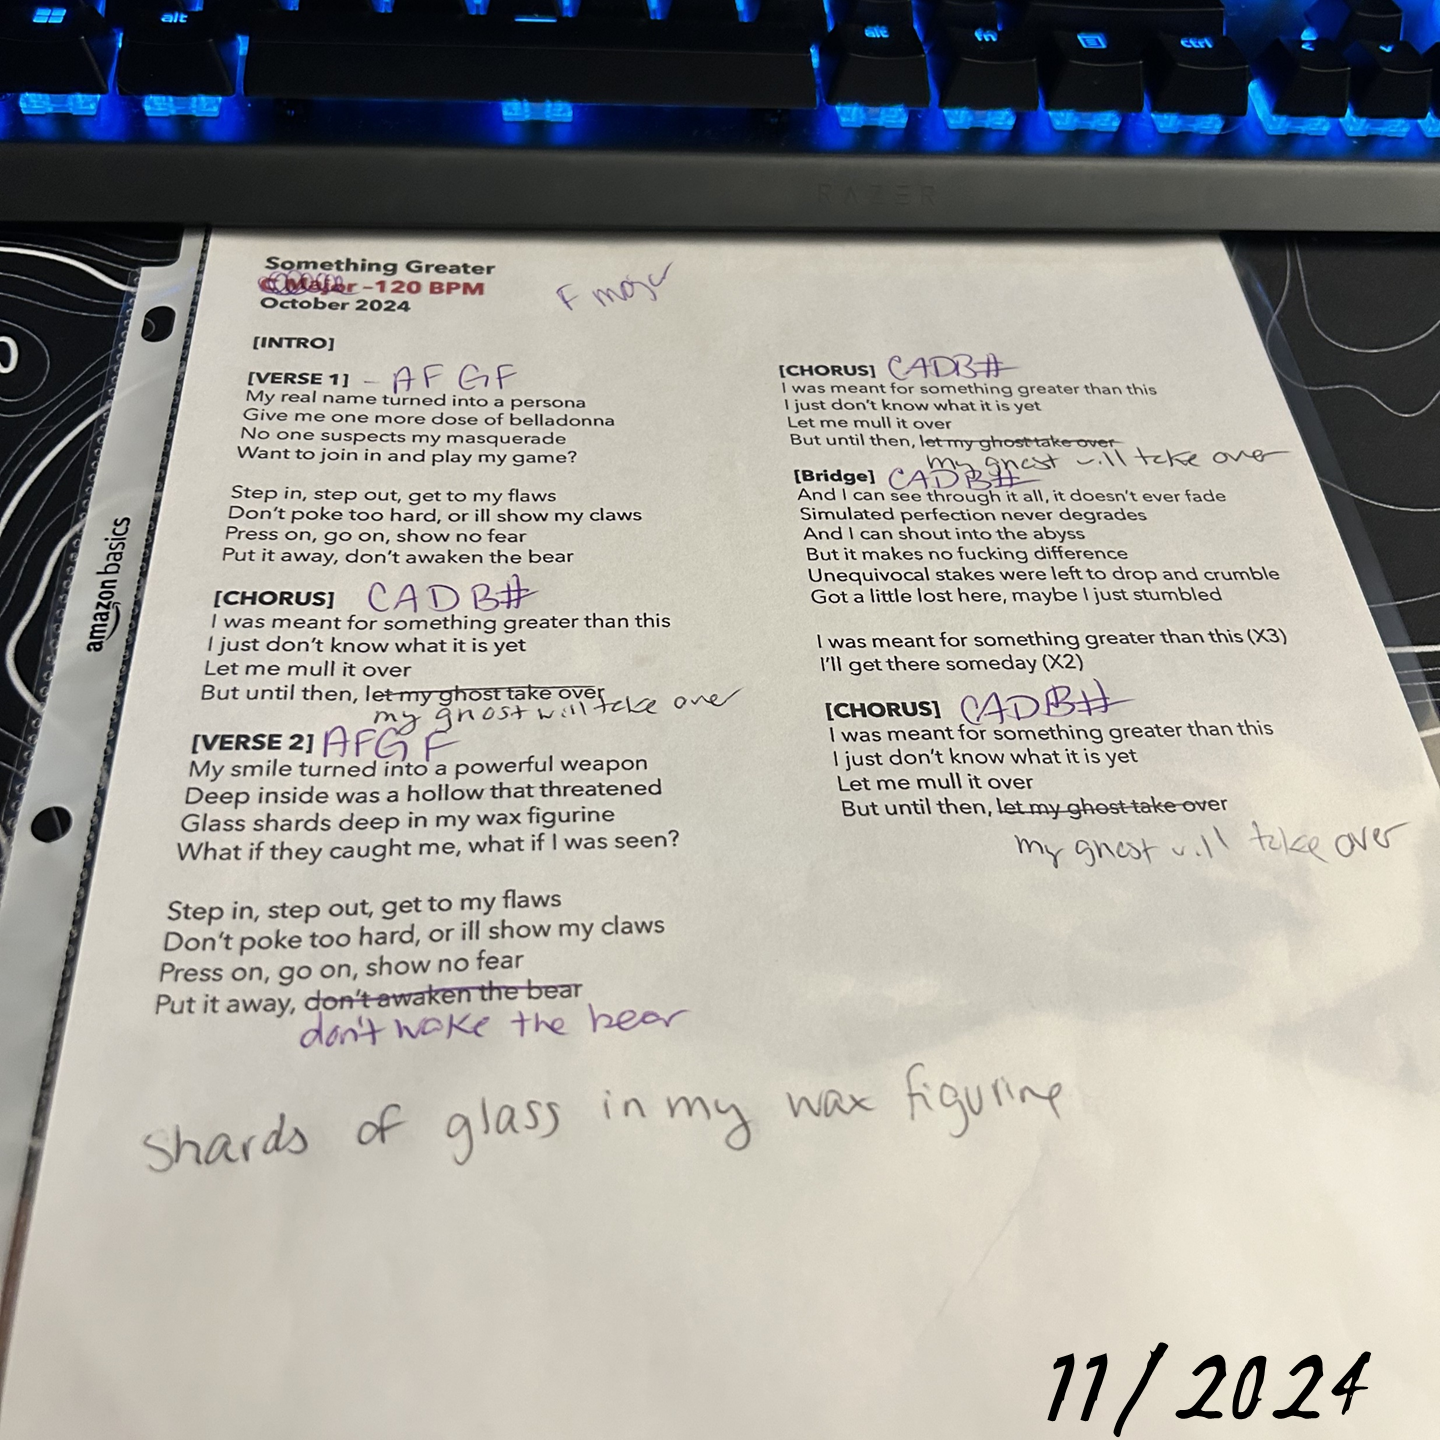 alt
alt
fn
ctrl
<
RAZER
Something Greater
Major -120 BPM
F major
October 2024
[INTRO]
[VERSE 1] - AFGF
My real name turned into a persona
Give me one more dose of belladonna
No one suspects my masquerade
Want to join in and play my game?
Step in, step out, get to my flaws
Don't poke too hard, or ill show my claws
Press on, go on, show no fear
Put it away, don't awaken the bear
[CHORUS] CADB#
I was meant for something greater than this
I just don't know what it is yet
Let me mull it over
But until then, let my ghost take over
my ghost will take over
[VERSE 2] AFGF
My smile turned into a powerful weapon
Deep inside was a hollow that threatened
Glass shards deep in my wax figurine
What if they caught me, what if I was seen?
Step in, step out, get to my flaws
Don't poke too hard, or ill show my claws
Press on, go on, show no fear
Put it away, don't awaken the bear
don't wake the bear
[CHORUS] CADB#
I was meant for something greater than this
I just don't know what it is yet
Let me mull it over
But until then, let my ghost take over
my ghost will take over
[Bridge] CADB#
And I can see through it all, it doesn't ever fade
Simulated perfection never degrades
And I can shout into the abyss
But it makes no fucking difference
Unequivocal stakes were left to drop and crumble
Got a little lost here, maybe I just stumbled
I was meant for something greater than this (X3)
I'll get there someday (X2)
[CHORUS] CADB#
I was meant for something greater than this
I just don't know what it is yet
Let me mull it over
But until then, let my ghost take over
my ghost will take over
shards of glass in my wax figurine
amazon basics
11/2024